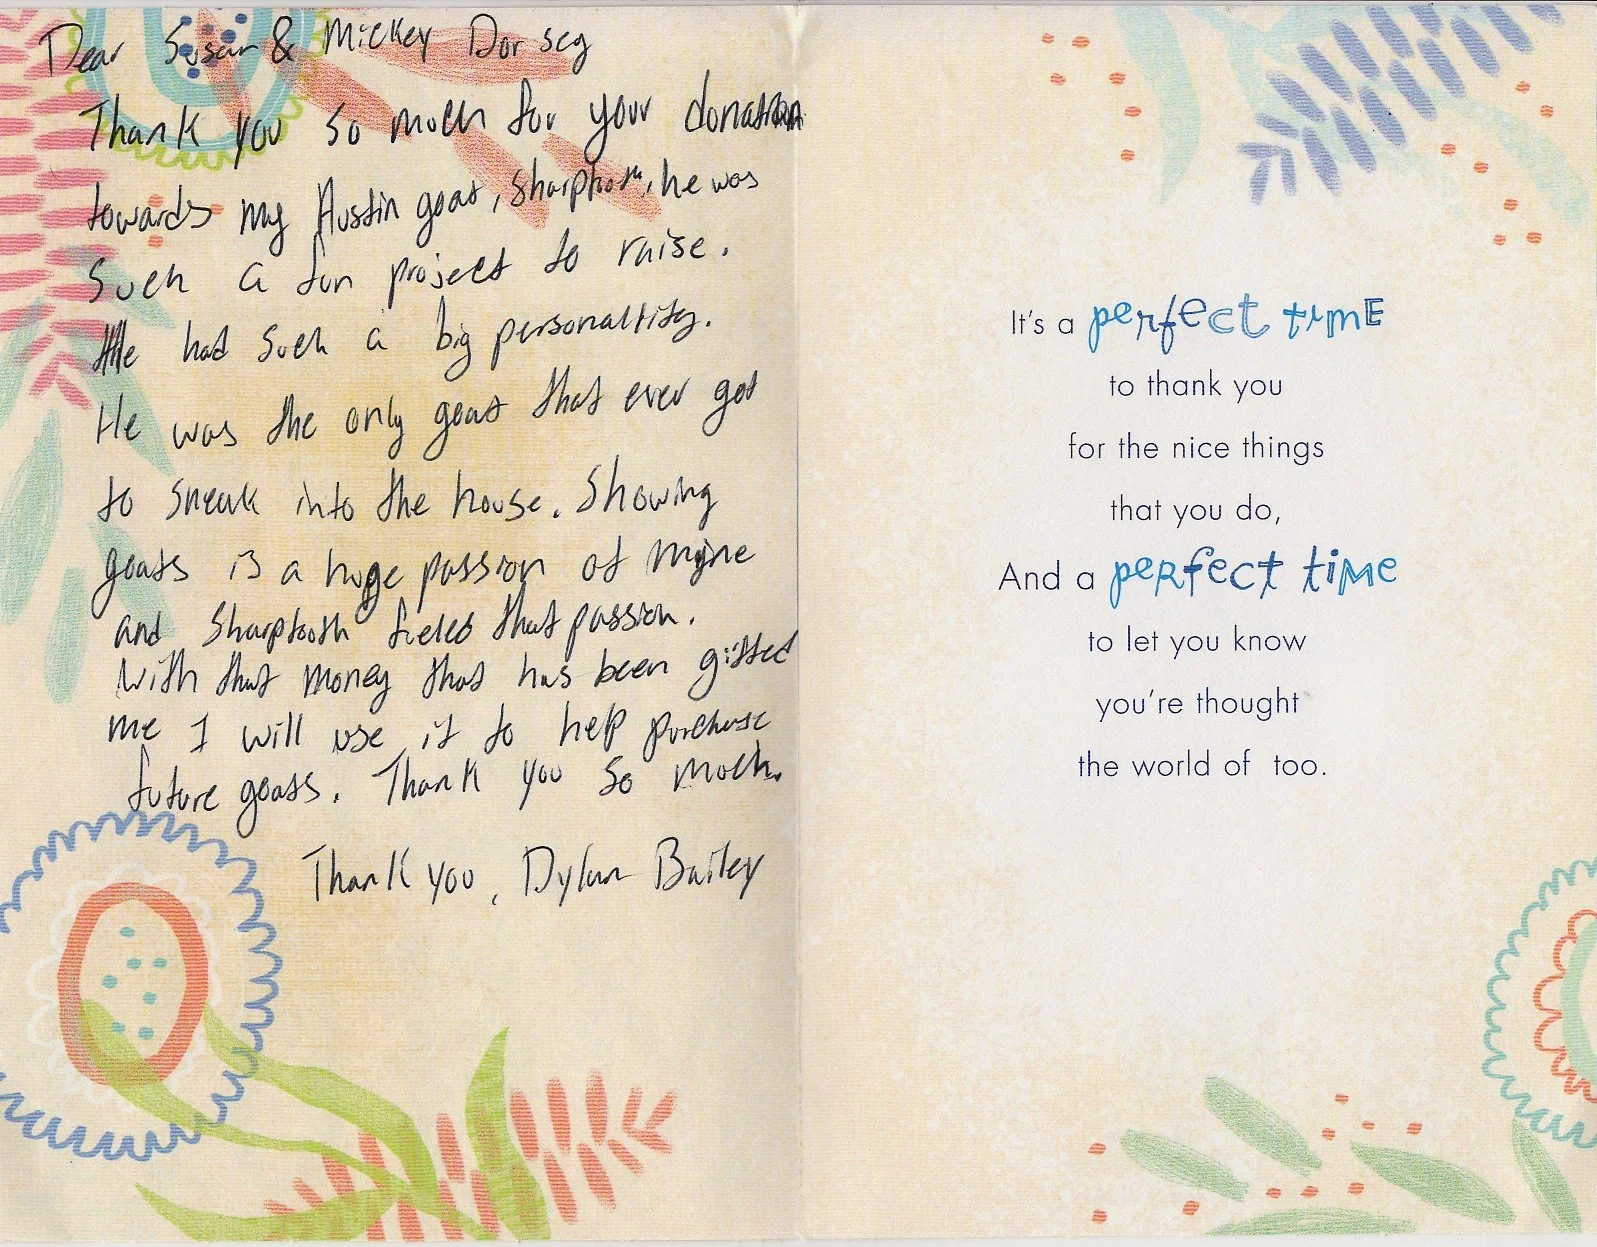 Dear Susan & Mickey Dorsey
Thank you so much for your donation
towards my Austin goat, Sharptooth, he was
such a fun project to raise.
He had such a big personaltity.
He was the only goat that ever got
to sneak into the house. Showing
goats is a huge passion of mine
and Sharptooth fueled that passion.
With that money that has been gifted
me I will use it to help purchase
future goats. Thank you so much.
Thank you, Dylan Bailey
It's a perfect time
to thank you
for the nice things
that you do,
And a perfect time
to let you know
you're thought
the world of too.